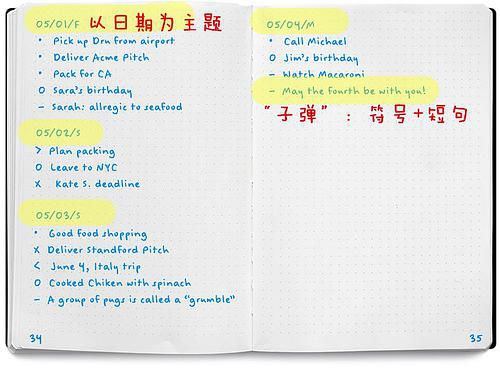 05/01/F 以日期为主题
• Pick up Dru from airport
• Deliver Acme Pitch
• Pack for CA
O Sara's birthday
– Sarah: allregic to seafood
05/02/S
> Plan packing
O Leave to NYC
x Kate S. deadline
05/03/S
• Good food shopping
x Deliver Standford Pitch
< June 4, Italy trip
O Cooked Chiken with spinach
– A group of pugs is called a "grumble"
34
05/04/M
• Call Michael
O Jim's birthday
– Watch Macaroni
– May the fourth be with you!
"子弹"：符号+短句
35